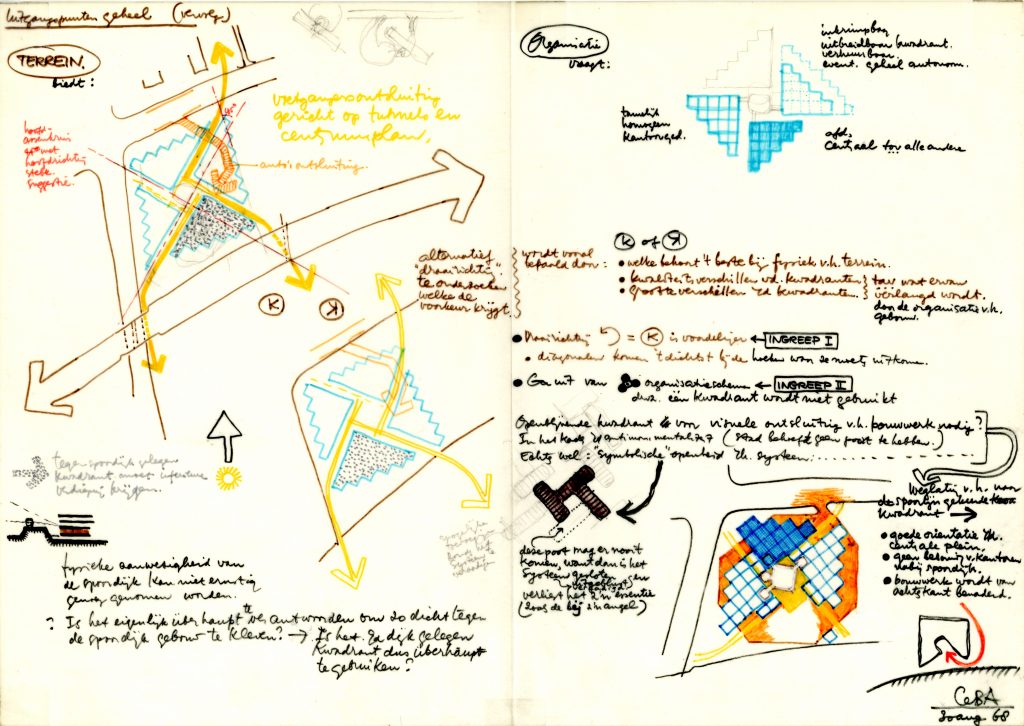 Uitgangspunten geheel (vervolg)
TERREIN.
biedt:
voetgangersontsluiting
gericht op tunnels en
centrumplan.
auto's ontsluiting.
hoofd-
hoofdrichting
sterke
suggestie.
alternatief
"draairichting"
te onderzoeken
welke de
voorkeur krijgt.
wordt vooral
bepaald door:
K
K
tegen spoordijk gelegen
kwadrant moet
verdieping krijgen.
fysieke aanwezigheid van
de spoordijk kan niet ernstig
genoeg genomen worden.
? Is het eigenlijk überhaupt te verantwoorden om zo dicht tegen
de spoordijk gebouw te kleven? → Is het. Ed dijk gelegen
kwadrant dus überhaupt
te gebruiken?
Organisatie
vraagt:
inkrimpbaar
uitbreidbaar kwadrant.
verhuurbaar.
event. geheel autonoom.
tamelijk
homogeen
kantoorged.
afd.
centraal tov alle andere
K of K
• welke behoort 't beste bij fysiek v.h. terrein.
• kwaliteitsverschillen vd. kwadranten
• Grootte verschillen vd kwadranten.
tav wat ervan
verlangd wordt.
door de organisatie v.h.
gebouw.
• Draairichting = K is voordeliger ← INGREEP I
• diagonalen komen 't dichtst bij de hoeken waar ze moeten uitkomen.
• Ga uit van organisatieschema ← INGREEP II
d.w.z. één kwadrant wordt niet gebruikt
kwadrant is voor visuele ontsluiting v.h. bouwwerk nodig?
In het kader (stad behoeft geen poort te hebben.)
Echter wel: "symbolische" openheid vh. systeem.
deze poot mag er nooit
komen, want dan is het
systeem gesloten en
verliest het z'n essentie
(zoals de bij z'n angel)
Weglating v.h. aan
de spoorlijn gelegen
kwadrant →
• goede orientatie vh.
centrale plein.
• geen belasting v. kantoren
nabij spoordijk.
• bouwwerk wordt van
achterkant benaderd.
CeBA
30 aug 68